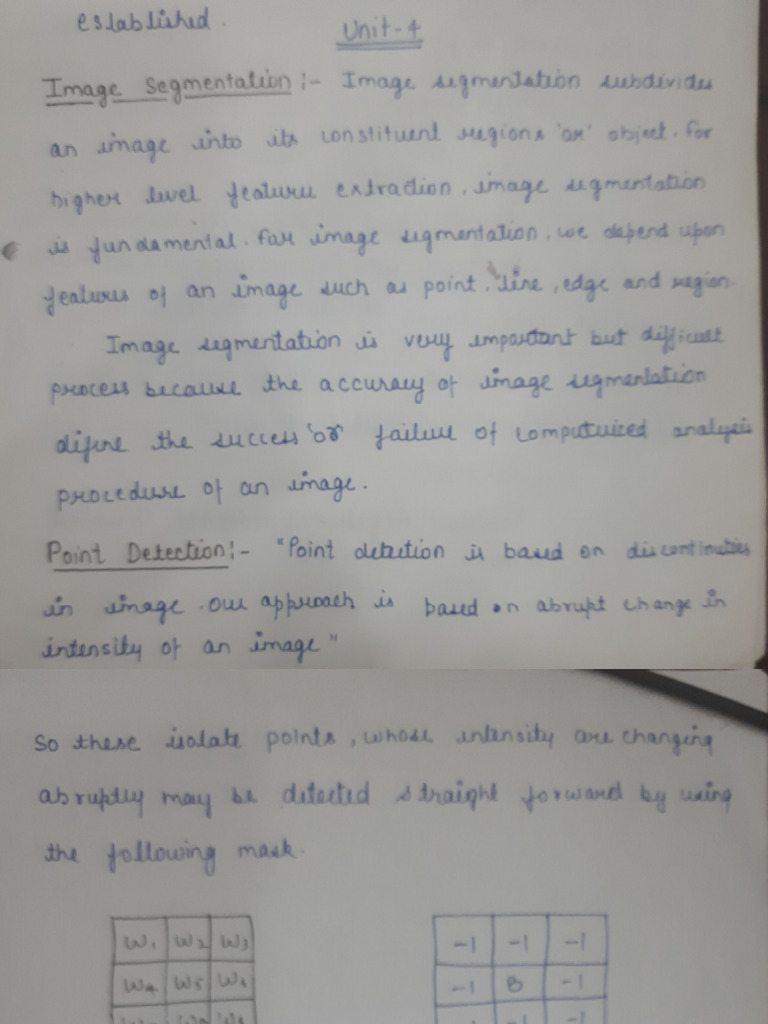 established.
Unit-4
Image Segmentation :- Image segmentation subdivides
an image into its constituent regions 'or' object. For
higher level feature extraction, image segmentation
is fundamental. For image segmentation, we depend upon
features of an image such as point, line, edge and region.
Image segmentation is very important but difficult
process because the accuracy of image segmentation
difine the success 'or' failure of computerized analysis
procedure of an image.
Point Detection:- "Point detection is based on discontinuties
in image. Our approach is based on abrupt change in
intensity of an image"
So these isolate points, whose intensity are changing
abruptly may be detected straight forward by using
the following mask.
W1 W2 W3 -1 -1 -1
W4 W5 W6 -1 8 -1
-1 -1